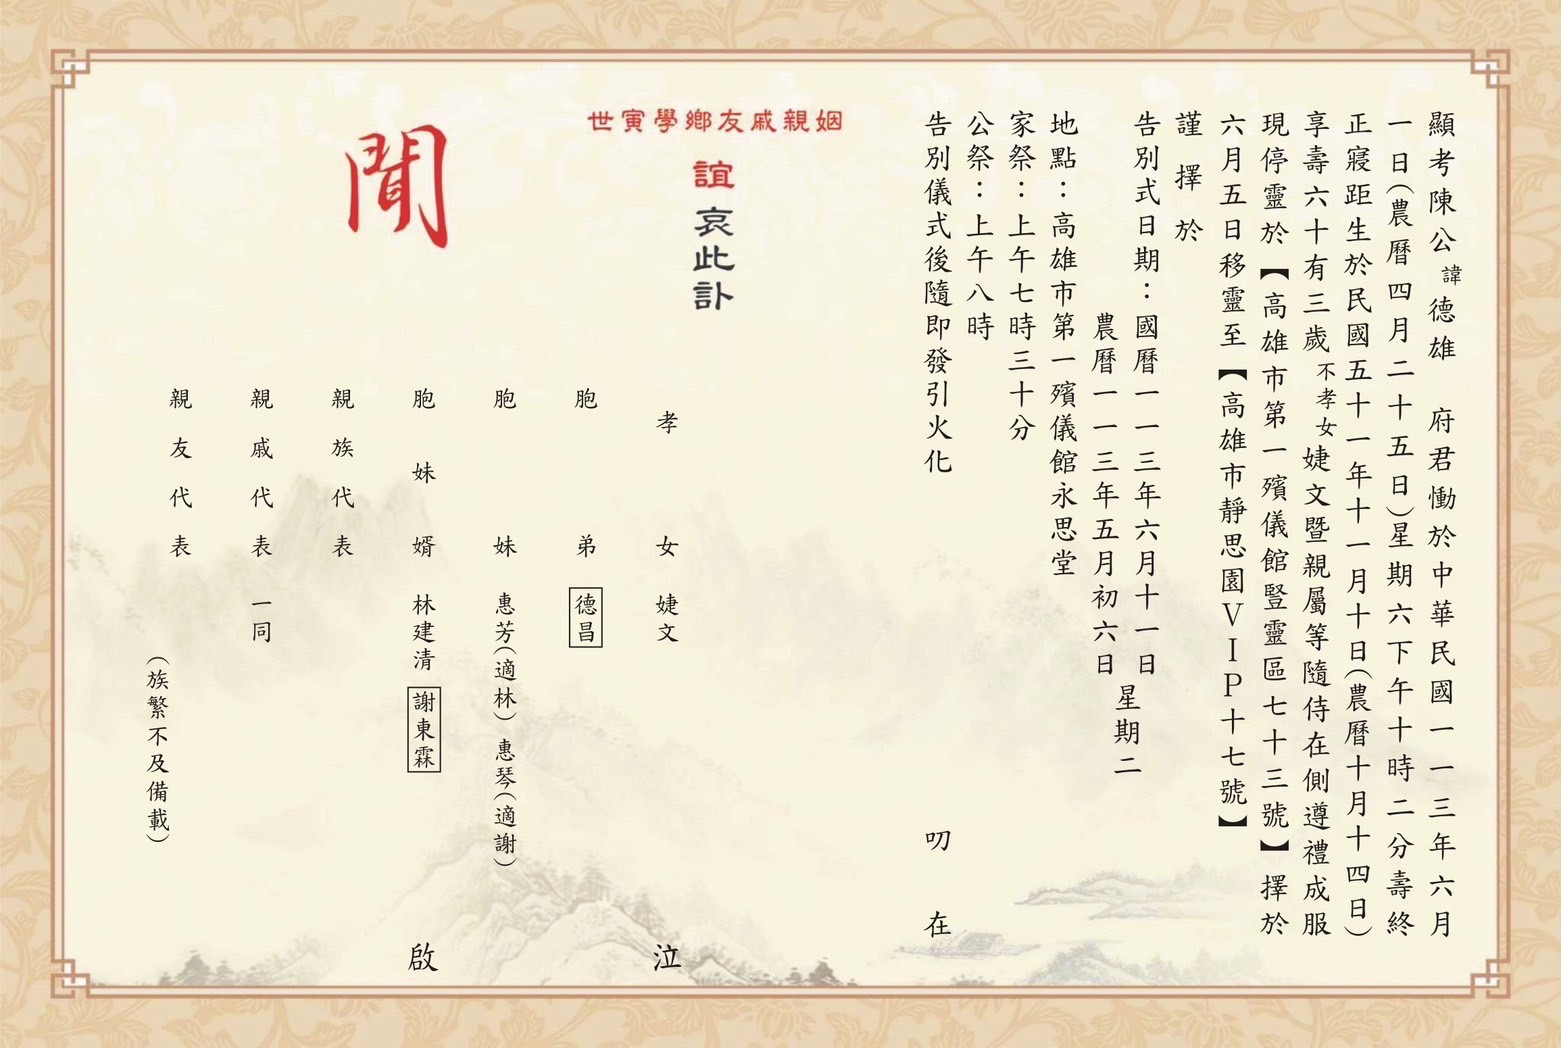 顯考陳公諱德雄　府君慟於中華民國一一三年六月
一日(農曆四月二十五日)星期六下午十時二分壽終
正寢距生於民國五十一年十一月十日(農曆十月十四日)
享壽六十有三歲不孝女婕文暨親屬等隨侍在側遵禮成服
現停靈於【高雄市第一殯儀館豎靈區七十三號】擇於
六月五日移靈至【高雄市靜思園VIP十七號】
謹擇於
告別式日期：國曆一一三年六月十一日
農曆一一三年五月初六日
星期二
地點：高雄市第一殯儀館永思堂
家祭：上午七時三十分
公祭：上午八時
告別儀式後隨即發引火化
叨在
姻親戚友鄉學寅世
誼
哀此訃
聞
孝女 婕文 泣
胞弟 德昌
胞妹 惠芳(適林) 惠琴(適謝)
胞妹婿 林建清 謝東霖 啟
親族代表
親戚代表 一同
親友代表
(族繁不及備載)